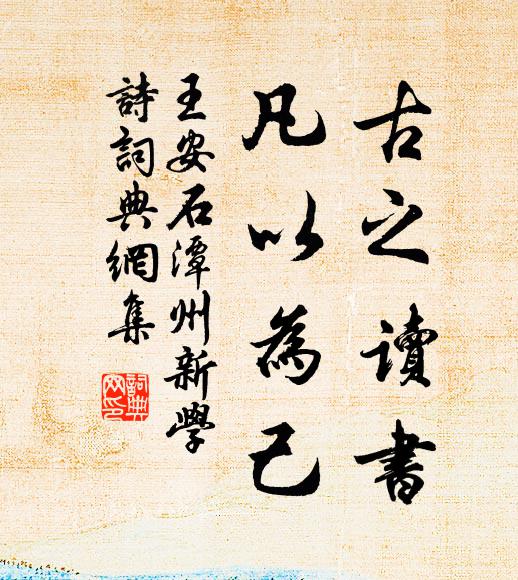 古之讀書
凡以為己
王安石潭州新學
詩詞典網集
詞典網印